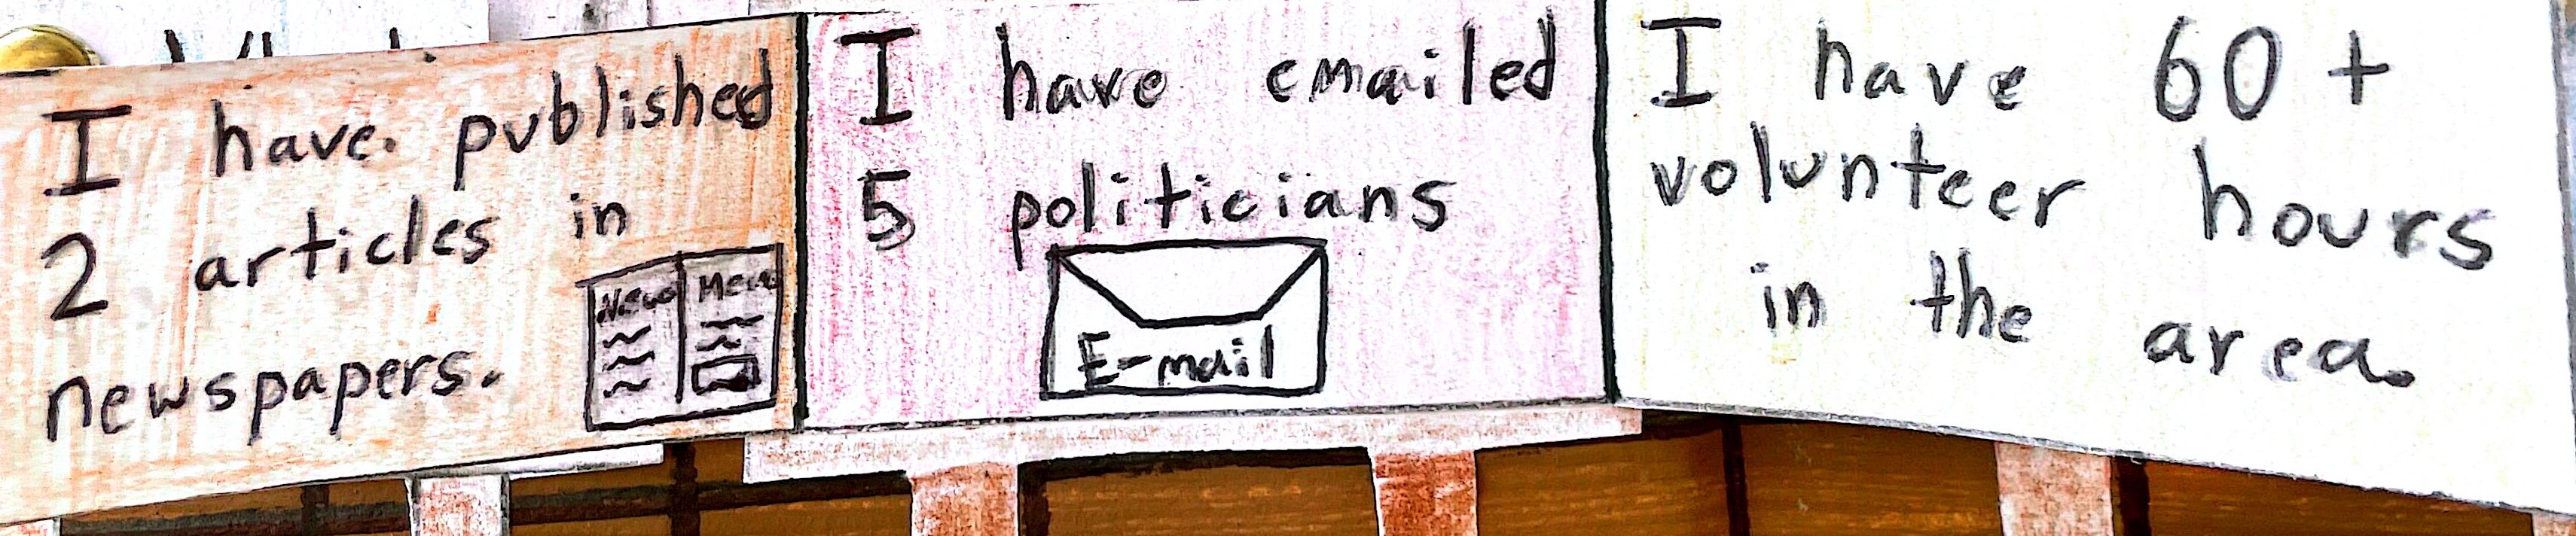 I have published
2 articles in
newspapers.
News
I have emailed
5 politicians
E-mail
I have 60+
volunteer hours
in the area.